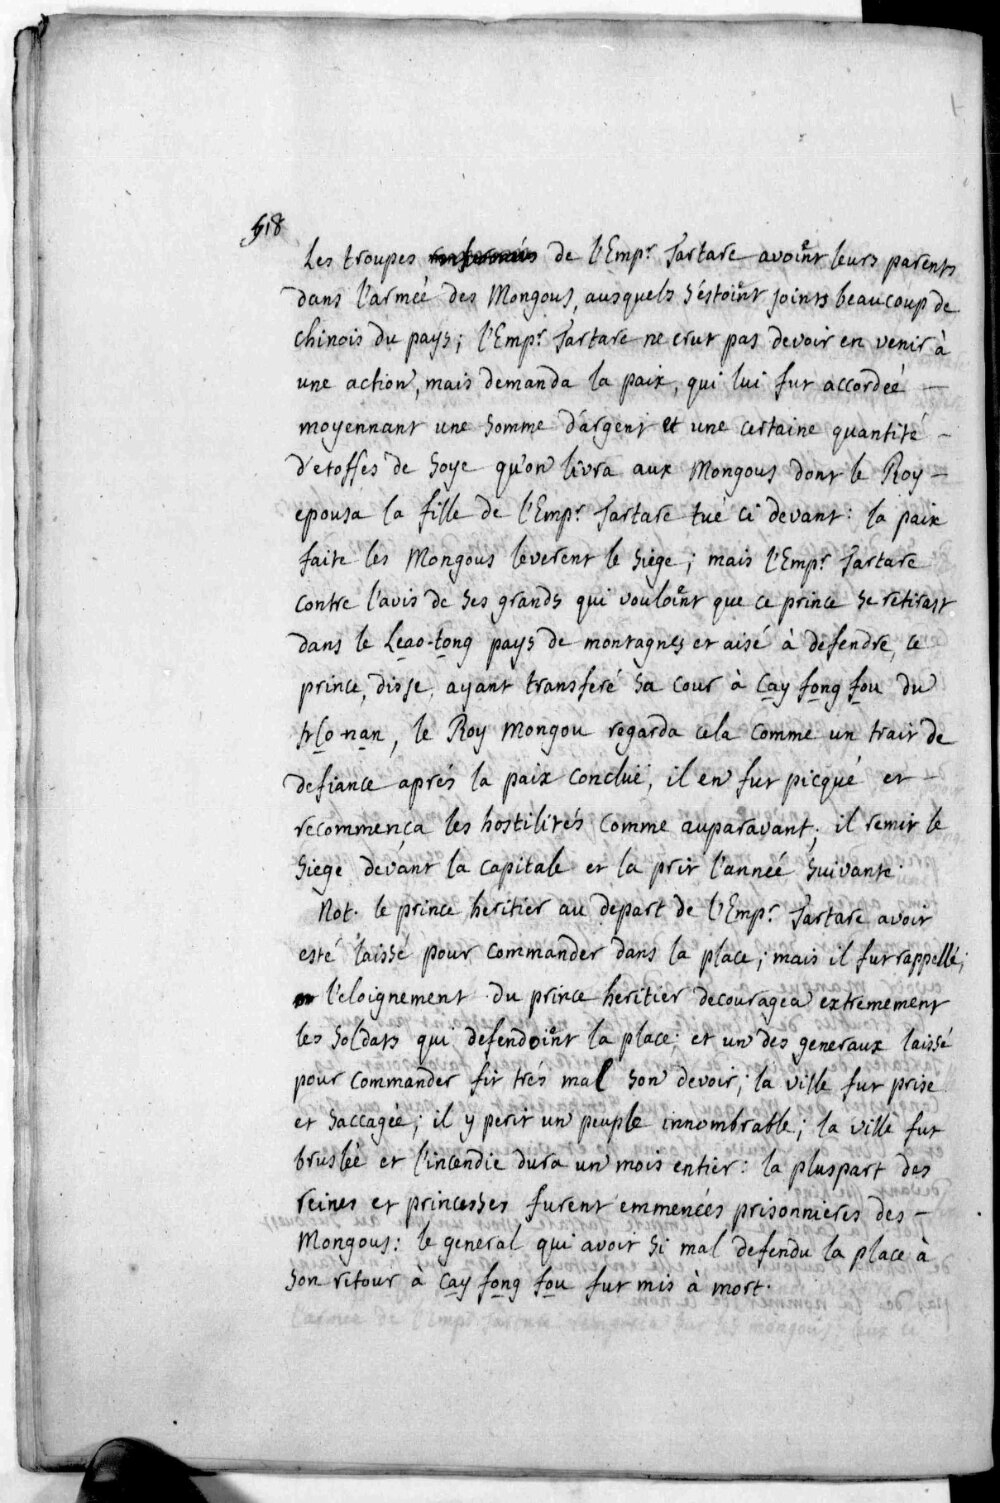 518
Les troupes de l'Empr Tartare avoient leurs parents
dans l'armée des Mongous, ausquels s'estoient joints beaucoup de
chinois du pays; l'Empr Tartare ne crut pas devoir en venir à
une action, mais demanda la paix, qui lui fut accordée –
moyennant une somme d'argent et une certaine quantité –
d'etoffes de soye qu'on livra aux Mongous dont le Roy –
epousa la fille de l'Empr Tartare tué ci devant: la paix
faite les Mongous leverent le siege; mais l'Empr Tartare
contre l'avis de ses grands qui vouloient que ce prince se retirast
dans le Leao-tong pays de montagnes et aisé à defendre, ce
prince, disje, ayant transferé sa cour à Cay fong fou du
Ho-nan, le Roy Mongou regarda cela comme un trait de
defiance aprés la paix concluë, il en fut picqué et –
recommença les hostilités comme auparavant; il remit le
siege devant la capitale et la prit l'année suivante.
Not. le prince heritier au depart de l'Empr Tartare avoit
esté laissé pour commander dans la place; mais il fut rappellé;
l'eloignement du prince heritier decouragea extremement
les soldats qui defendoient la place; et un des generaux laissé
pour commander fit trés mal son devoir; la ville fut prise
et saccagée; il y perit un peuple innombrable; la ville fut
bruslée et l'incendie dura un mois entier: la pluspart des
reines et princesses furent emmenées prisonnieres des –
Mongous: le general qui avoit si mal defendu la place à
son retour à Cay fong fou fut mis à mort.